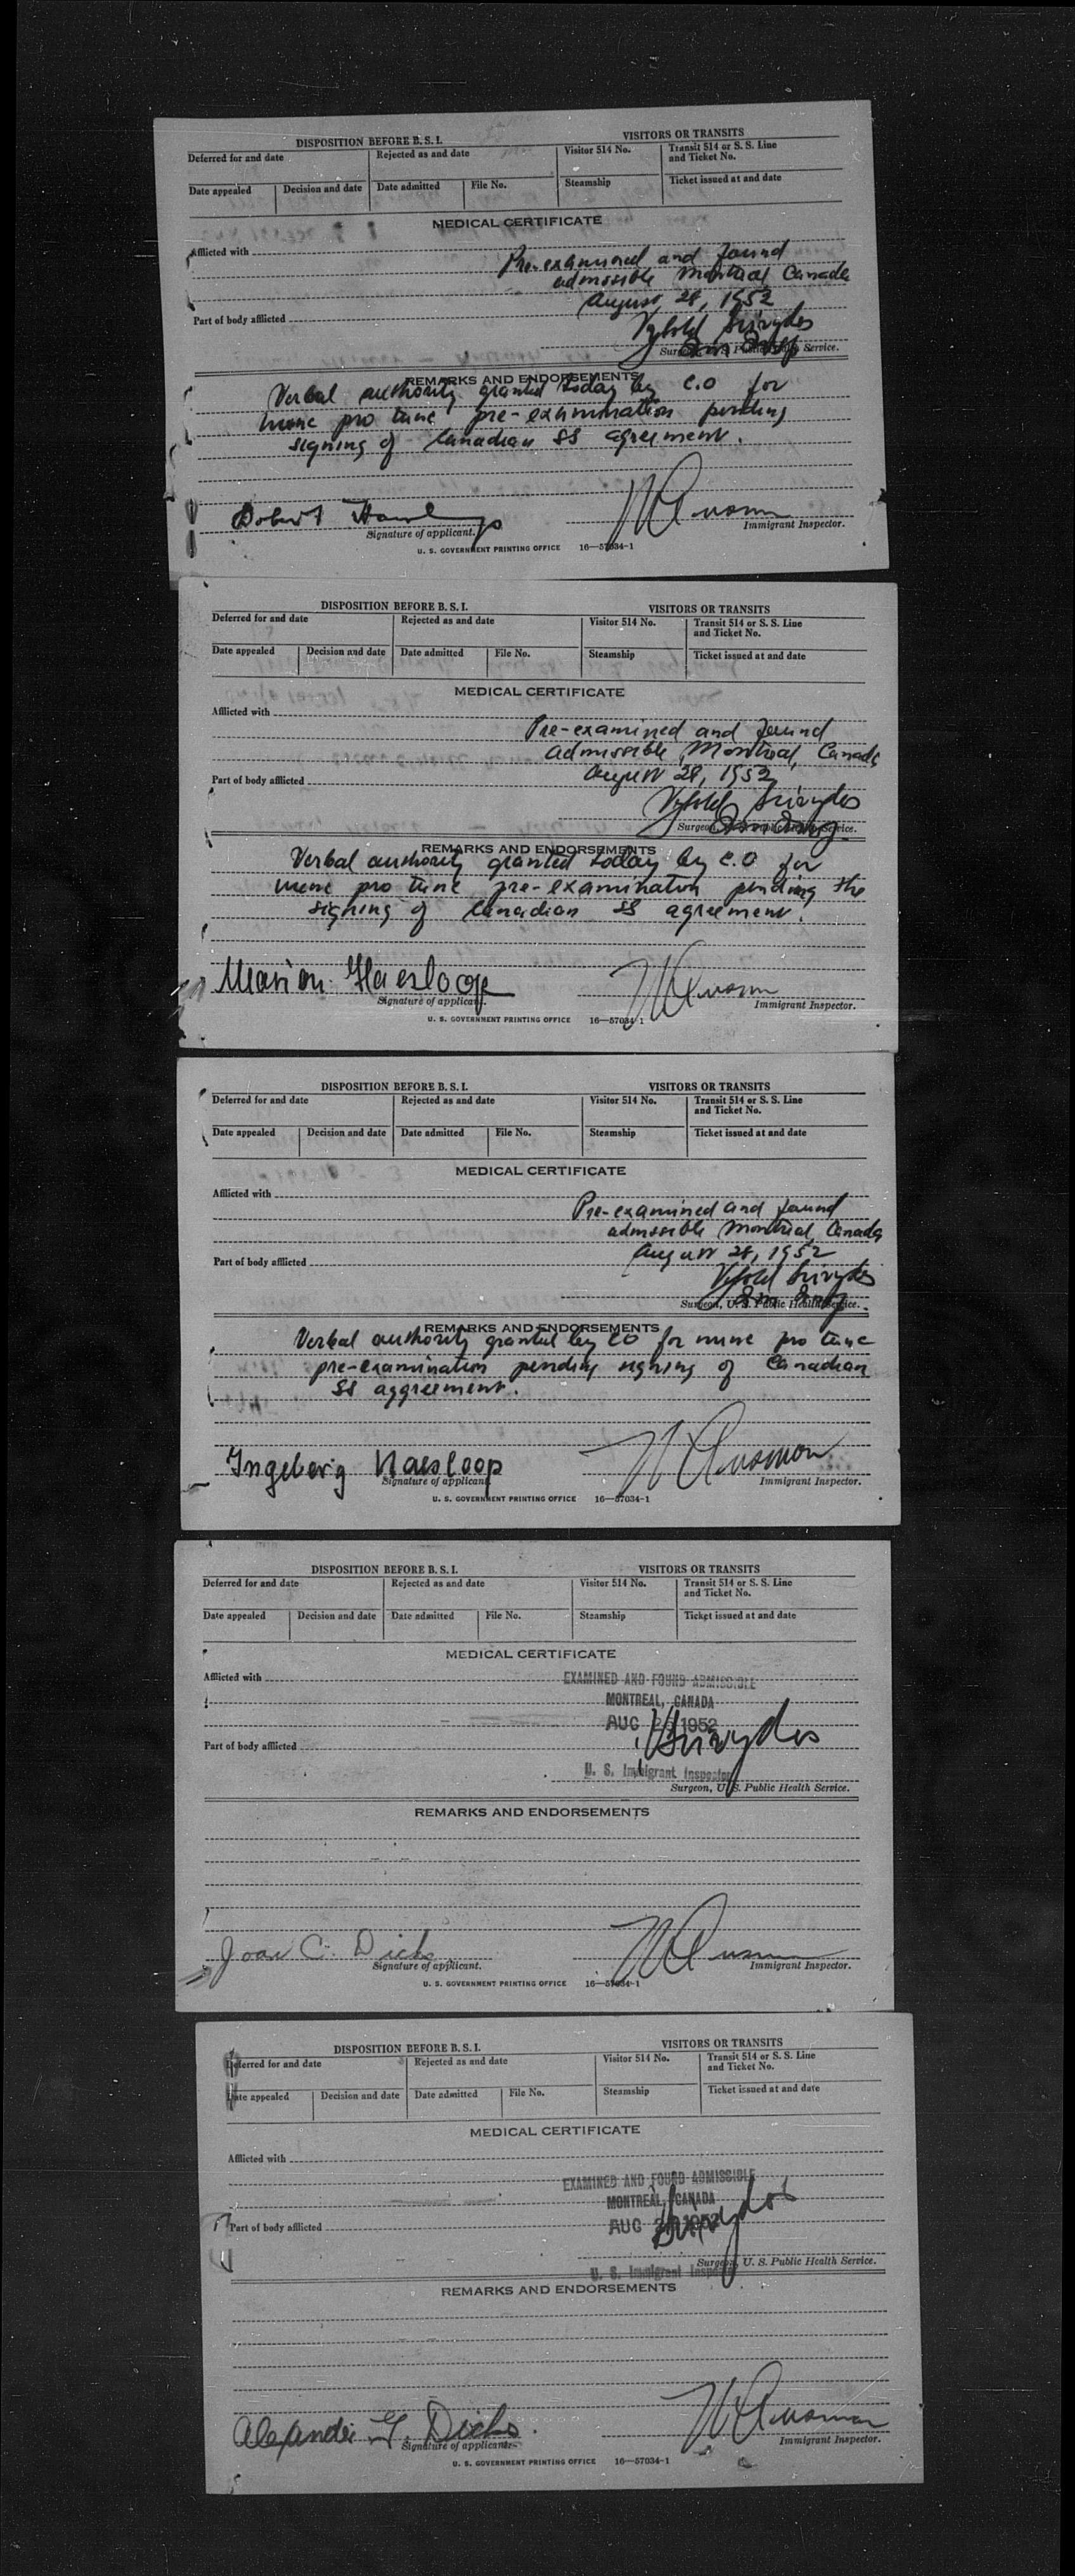 DISPOSITION BEFORE B. S. I.
VISITORS OR TRANSITS
Deferred for and date
Rejected as and date
Visitor 514 No.
Transit 514 or S. S. Line
and Ticket No.
Date appealed
Decision and date
Date admitted
File No.
Steamship
Ticket issued at and date
MEDICAL CERTIFICATE
Afflicted with
Pre-examined and found
admissible Montreal, Canada
August 28, 1952
Part of body afflicted
Service.
REMARKS AND ENDORSEMENTS
Verbal authority granted today by C.O for
nunc pro tunc pre-examination pending
signing of Canadian SS agreement.
Robert
Signature of applicant.
Immigrant Inspector.
U. S. GOVERNMENT PRINTING OFFICE 16—57034-1
DISPOSITION BEFORE B. S. I.
VISITORS OR TRANSITS
Deferred for and date
Rejected as and date
Visitor 514 No.
Transit 514 or S. S. Line
and Ticket No.
Date appealed
Decision and date
Date admitted
File No.
Steamship
Ticket issued at and date
MEDICAL CERTIFICATE
Afflicted with
Pre-examined and found
admissible, Montreal, Canada
August 28, 1952
Part of body afflicted
Surgeon, Service.
REMARKS AND ENDORSEMENTS
Verbal authority granted today by C.O for
nunc pro tunc pre-examination pending the
signing of Canadian SS agreement.
Marion Haesloop
Signature of applicant.
Immigrant Inspector.
U. S. GOVERNMENT PRINTING OFFICE 16—57034-1
DISPOSITION BEFORE B. S. I.
VISITORS OR TRANSITS
Deferred for and date
Rejected as and date
Visitor 514 No.
Transit 514 or S. S. Line
and Ticket No.
Date appealed
Decision and date
Date admitted
File No.
Steamship
Ticket issued at and date
MEDICAL CERTIFICATE
Afflicted with
Pre-examined and found
admissible Montreal, Canada
August 28, 1952
Part of body afflicted
Surgeon, U. S. Public Health Service.
REMARKS AND ENDORSEMENTS
Verbal authority granted by CO for nunc pro tunc
pre-examination pending signing of Canadian
SS aggreement.
Ingeborg Haesloop
Signature of applicant.
Immigrant Inspector.
U. S. GOVERNMENT PRINTING OFFICE 16—57034-1
DISPOSITION BEFORE B. S. I.
VISITORS OR TRANSITS
Deferred for and date
Rejected as and date
Visitor 514 No.
Transit 514 or S. S. Line
and Ticket No.
Date appealed
Decision and date
Date admitted
File No.
Steamship
Ticket issued at and date
MEDICAL CERTIFICATE
Afflicted with
EXAMINED AND FOUND ADMISSIBLE
MONTREAL, CANADA
AUG 1952
Part of body afflicted
U. S. Immigrant Inspector
Surgeon, U. S. Public Health Service.
REMARKS AND ENDORSEMENTS
Joan C. Dicks
Signature of applicant.
Immigrant Inspector.
U. S. GOVERNMENT PRINTING OFFICE 16—57034-1
DISPOSITION BEFORE B. S. I.
VISITORS OR TRANSITS
Deferred for and date
Rejected as and date
Visitor 514 No.
Transit 514 or S. S. Line
and Ticket No.
Date appealed
Decision and date
Date admitted
File No.
Steamship
Ticket issued at and date
MEDICAL CERTIFICATE
Afflicted with
EXAMINED AND FOUND ADMISSIBLE
MONTREAL, CANADA
AUG 1952
Part of body afflicted
Surgeon, U. S. Public Health Service.
U. S. Immigrant Inspector
REMARKS AND ENDORSEMENTS
Alexander G. Dicks.
Signature of applicant.
Immigrant Inspector.
U. S. GOVERNMENT PRINTING OFFICE 16—57034-1